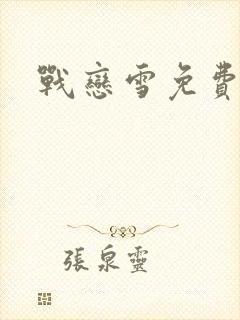 戰戀雪免費
張泉靈